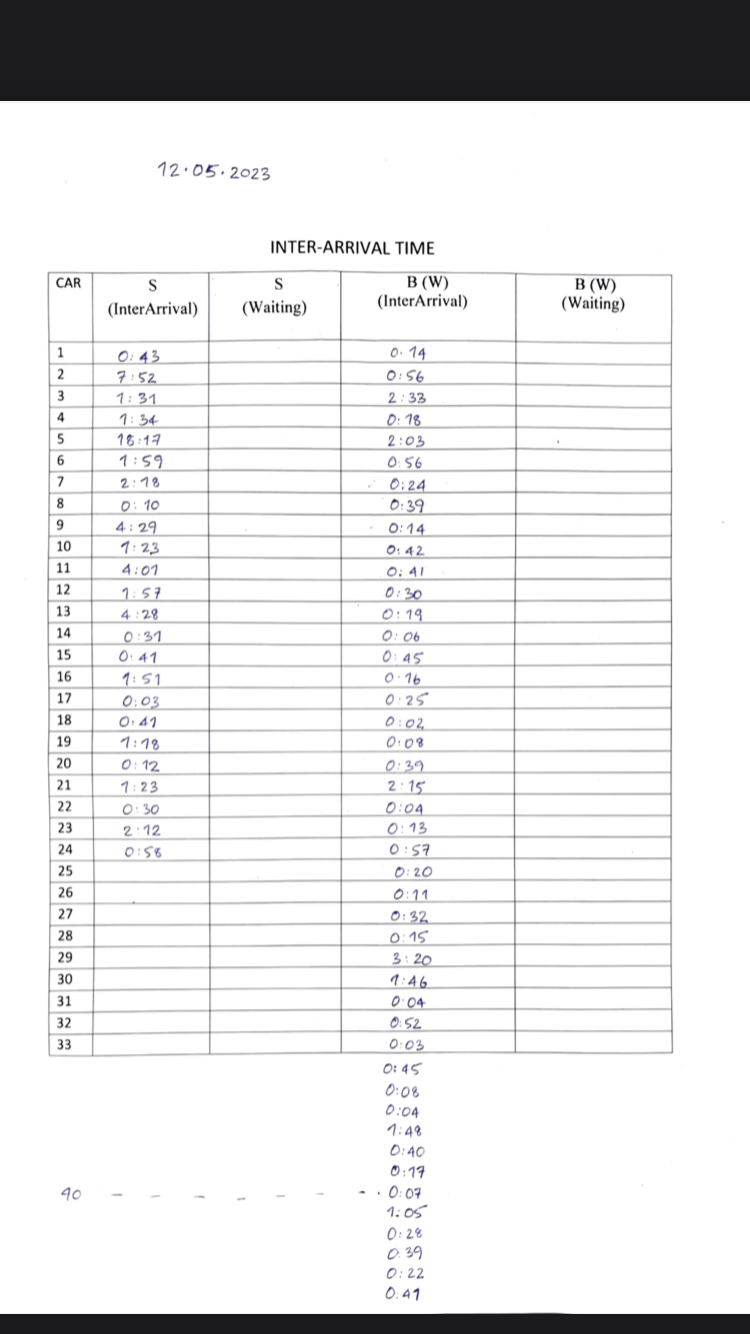 12.05.2023
INTER-ARRIVAL TIME
CAR S (InterArrival) S (Waiting) B (W) (InterArrival) B (W) (Waiting)
1 0:43 0.14
2 7:52 0:56
3 1:31 2:33
4 1:34 0:18
5 2:03
6 1:59 0:56
7 2:18 0:24
8 0:10 0:39
9 4:29 0:14
10 1:23 0:42
11 4:01 0:41
12 1:57 0:30
13 4:28 0:19
14 0:31 0:06
15 0:41 0:45
16 1:51 0.16
17 0:03 0:25
18 0:41 0:02
19 1:18 0:08
20 0:12 0:39
21 1:23 2:15
22 0:30 0:04
23 2.12 0:13
24 0:58 0:57
25 0:20
26 0:11
27 0:32
28 0:15
29 3:20
30 1:46
31 0.04
32 0:52
33 0:03
0:45
0:08
0:04
1:48
0:40
0:17
40 - - - - - - - . 0:07
1:05
0:28
0.39
0:22
0.41